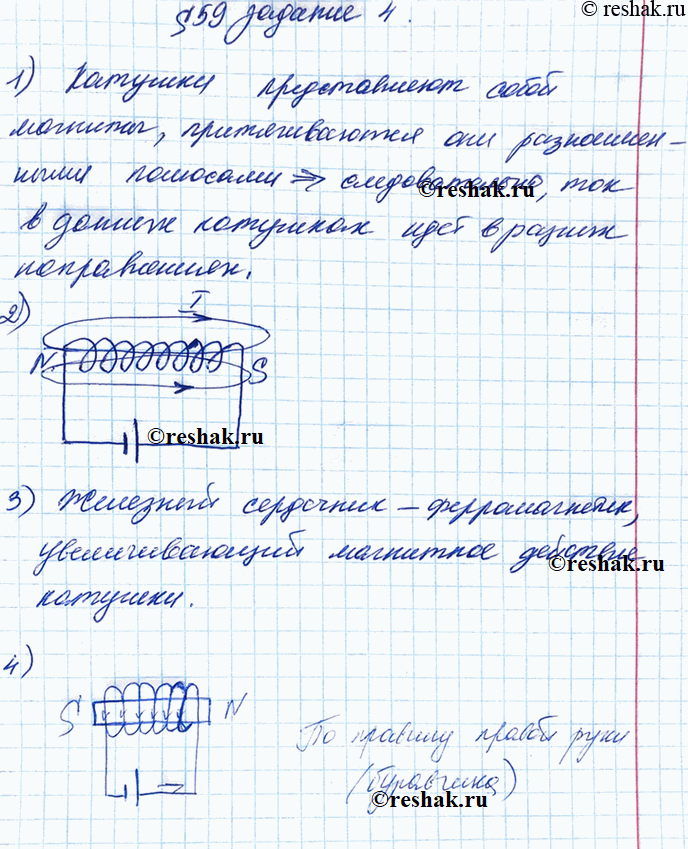 © reshak.ru
§59 задание 4.
1) Катушки представляют собой
магниты, притягиваются они разноимен-
ными полюсами => следовательно, ток
© reshak.ru
в данных катушках идёт в разных
направлениях.
2)
I
N S
© reshak.ru
3) Железный сердечник – ферромагнетик,
увеличивающий магнитное действие
© reshak.ru
катушки.
4)
S N
По правилу правой руки
(буравчика)
© reshak.ru